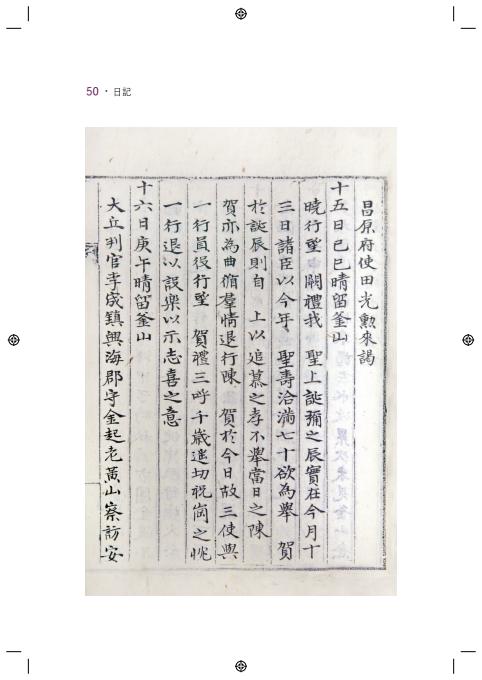 50 · 日記
昌原府使田光勳來謁
十五日己巳晴留釜山
曉行望 闕禮我 聖上誕彌之辰實在今月十
三日諸臣以今年 聖壽洽滿七十欲為舉 賀
於誕辰則自 上以追慕之孝不舉當日之陳
賀亦為曲循羣情退行陳 賀於今日故三使與
一行員役行望 賀禮三呼千歲遙切祝崗之忱
一行退以設樂以示志喜之意
十六日庚午晴留釜山
大丘判官李宬鎮興海郡守金起老黃山察訪安